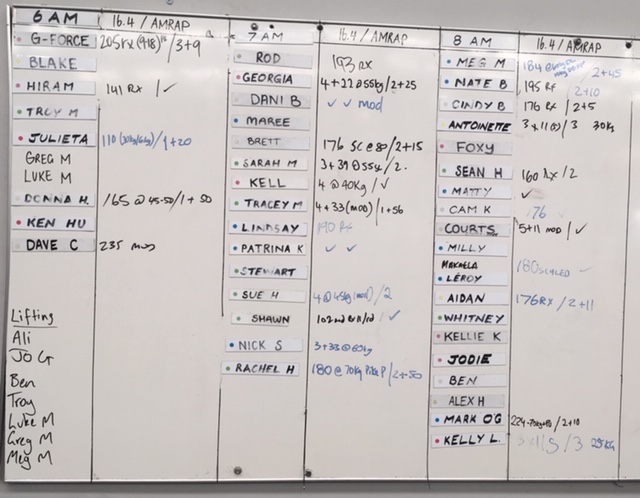 6 AM 16.4 / AMRAP
G-FORCE 205 rx / 3+9
BLAKE
HIRAM 141 RX / ✓
TROY M
JULIETA 110 / 1+20
GREG M
LUKE M
DONNA H. 165 @ 45-50 / 1+50
KEN HU
DAVE C 235 mod
Lifting
Ali
JO G
Ben
Troy
Luke M
Greg M
Meg M
7 AM 16.4 / AMRAP
ROD 193 RX
GEORGIA 4+22 @ 55kg / 2+25
DANI B ✓ ✓ mod
MAREE
BRETT 176 SC @ 80 / 2+15
SARAH M 3+39 @ 55kg / 2.
KELL 4 @ 40kg / ✓
TRACEY M 4+33 (mod) / 1+56
LINDSAY 190 Rx
PATRINA K ✓ ✓
STEWART
SUE H 4 @ 45kg (mod) / 2
SHAWN ✓
NICK S 3+33 @ 60kg
RACHEL H 180 @ 70kg / 2+50
8 AM 16.4 / AMRAP
MEG M 184 2+45
NATE B 195 Rx 2+10
CINDY B 176 Rx / 2+5
ANTOINETTE 3 x 11 @ / 3 30kg
FOXY
SEAN H 160 Rx / 2
MATTY ✓
CAM K 176
COURTS 5+11 mod / ✓
MILLY
MAKAELA 180 scaled ✓
LEROY
AIDAN 176 RX / 2+11
WHITNEY
KELLIE K
JODIE
BEN
ALEX H
MARK O'G 224 / 2+10
KELLY L. / 3